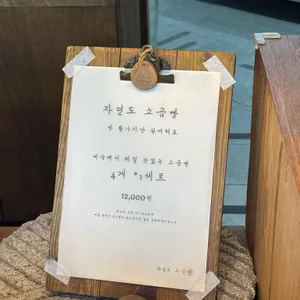 자연도 소금빵
단 한가지만 판매해요
세상에서 제일 맛있는 소금빵
4개 *1세트
12,000원
자연도 소금빵